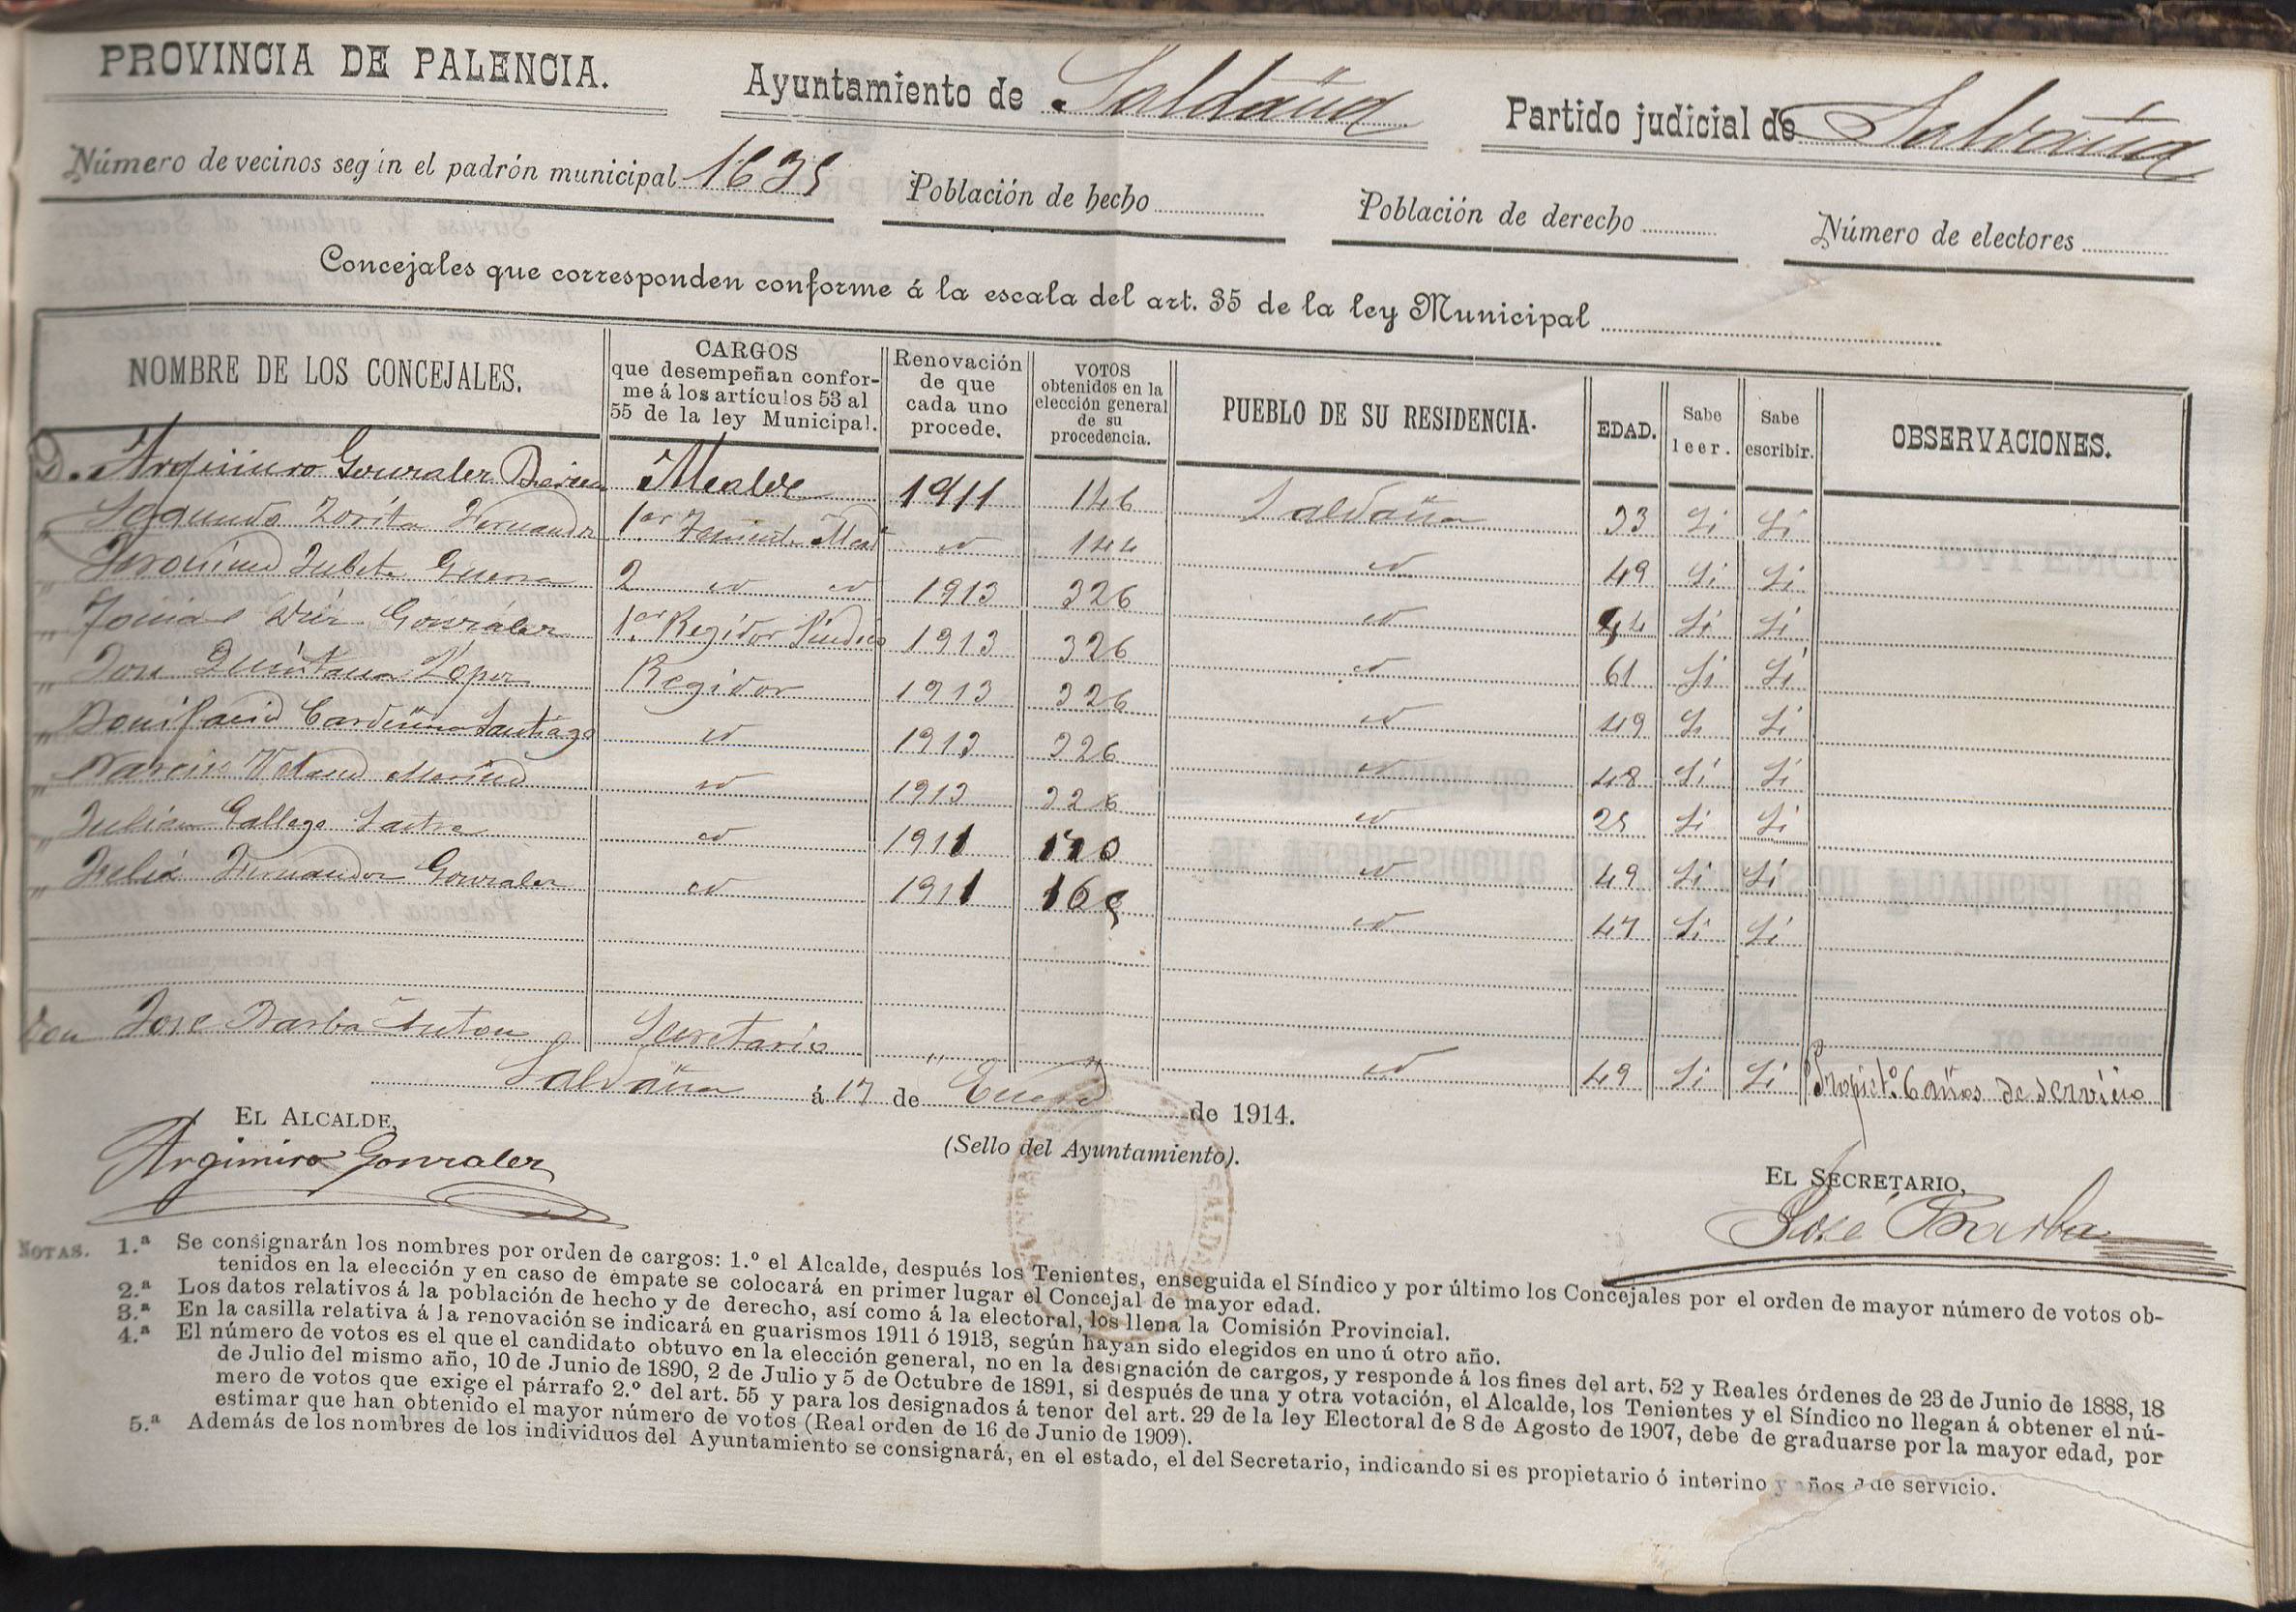 PROVINCIA DE PALENCIA. Ayuntamiento de Saldaña Partido judicial de Saldaña
Número de vecinos según el padrón municipal 1635 Población de hecho Población de derecho Número de electores
Concejales que corresponden conforme á la escala del art. 35 de la ley Municipal
NOMBRE DE LOS CONCEJALES. CARGOS que desempeñan conforme á los artículos 53 al 55 de la ley Municipal. Renovación de que cada uno procede. VOTOS obtenidos en la elección general de su procedencia. PUEBLO DE SU RESIDENCIA. EDAD. Sabe leer. Sabe escribir. OBSERVACIONES.
D. Argimiro Gonzalez Alcalde 1911 146 Saldaña 33 Si Si
Segundo Zorita Hernandz 1er Teniente Alcal id 144 id 49 Si Si
" Jeronimo Gubete Guerra 2 id id 1913 326 id 44 Si Si
" Tomas Diez Gonzalez 1er Regidor Sindico 1913 326 id 61 Si Si
" Jose Quintana Lopez Regidor 1913 326 id 49 Si Si
" Bonifacio Cardeñoso Santiago id 1913 326 id 48 Si Si
" Narciso Merino id 1913 326 id 25 Si Si
" Julian Gallego Sastre id 1911 170 id 49 Si Si
" Felix Fernandez Gonzalez id 1911 165 id 47 Si Si
Don Jose Barba Anton Secretario " " id 49 Si Si Propiet.º 6 años de servicio
Saldaña á 17 de Enero de 1914.
EL ALCALDE,
(Sello del Ayuntamiento).
EL SECRETARIO,
Argimiro Gonzalez
José Barba
NOTAS. 1.ª Se consignarán los nombres por orden de cargos: 1.º el Alcalde, después los Tenientes, enseguida el Síndico y por último los Concejales por el orden de mayor número de votos ob-
tenidos en la elección y en caso de empate se colocará en primer lugar el Concejal de mayor edad.
2.ª Los datos relativos á la población de hecho y de derecho, así como á la electoral, los llena la Comisión Provincial.
3.ª En la casilla relativa á la renovación se indicará en guarismos 1911 ó 1913, según hayan sido elegidos en uno ú otro año.
4.ª El número de votos es el que el candidato obtuvo en la elección general, no en la designación de cargos, y responde á los fines del art. 52 y Reales órdenes de 23 de Junio de 1888, 18
de Julio del mismo año, 10 de Junio de 1890, 2 de Julio y 5 de Octubre de 1891, si después de una y otra votación, el Alcalde, los Tenientes y el Síndico no llegan á obtener el nú-
mero de votos que exige el párrafo 2.º del art. 55 y para los designados á tenor del art. 29 de la ley Electoral de 8 de Agosto de 1907, debe de graduarse por la mayor edad, por
estimar que han obtenido el mayor número de votos (Real orden de 16 de Junio de 1909).
5.ª Además de los nombres de los individuos del Ayuntamiento se consignará, en el estado, el del Secretario, indicando si es propietario ó interino y años de servicio.